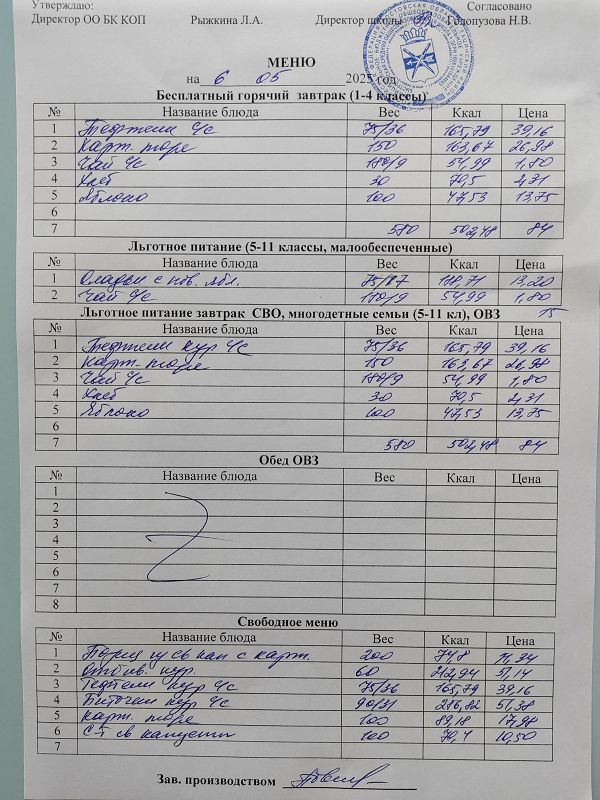 Утверждаю: Согласовано
Директор ОО БК КОП Рыжкина Л.А. Директор школы Голопузова Н.В.
МЕНЮ
на 6 05 2025 год
Бесплатный горячий завтрак (1-4 классы)
№ Название блюда Вес Ккал Цена
1 Тефтели ч/с 75/36 165,79 39,16
2 Карт. пюре 150 163,67 26,98
3 Чай ч/с 180/9 54,99 1,80
4 Хлеб 30 70,5 2,31
5 Яблоко 100 47,53 13,75
6
7 580 502,48 84
Льготное питание (5-11 классы, малообеспеченные)
№ Название блюда Вес Ккал Цена
1 Оладьи с пов. ябл. 13,20
2 Чай ч/с 180/9 54,99 1,80
Льготное питание завтрак СВО, многодетные семьи (5-11 кл), ОВЗ 15
№ Название блюда Вес Ккал Цена
1 Тефтели кур ч/с 75/36 165,79 39,16
2 Карт. пюре 150 163,67 26,98
3 Чай ч/с 180/9 54,99 1,80
4 Хлеб 30 70,5 2,31
5 Яблоко 100 47,53 13,75
6
7 580 502,48 84
Обед ОВЗ
№ Название блюда Вес Ккал Цена
1
2
3
4
5
6
7
8
Свободное меню
№ Название блюда Вес Ккал Цена
1 Борщ из св кап с карт. 200 74,8 11,34
2 Отбив. кур. 60 212,94 51,14
3 Тефтели кур ч/с 75/36 165,79 39,16
4 Биточки кур ч/с 90/31 216,82 51,38
5 Карт. пюре 100 89,18 17,98
6 С-т св капусты 100 70,4 10,50
7
Зав. производством